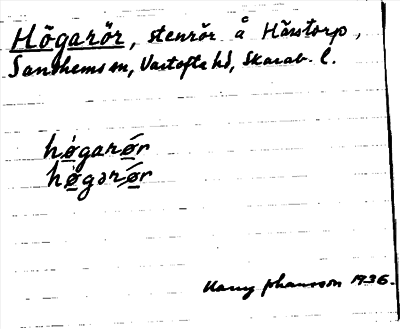 Högarör, stenrör å Hårstorp,
Sandhems sn, Vartofta hd, Skarab. l.
högarör
högarör
Harry Johansson 1936.